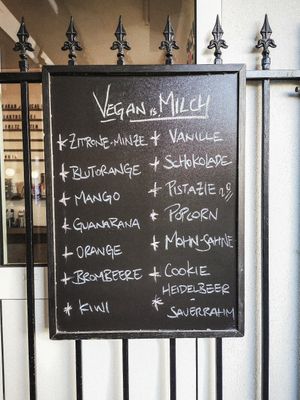 VEGAN vs. MILCH
* ZITRONE-MINZE
* BLUTORANGE
* MANGO
* GUANABANA
* ORANGE
* BROMBEERE
* KIWI
* VANILLE
* SCHOKOLADE
* PISTAZIE
* POPCORN
* MOHN-SAHNE
* COOKIE
* HEIDELBEER
- SAUERRAHM